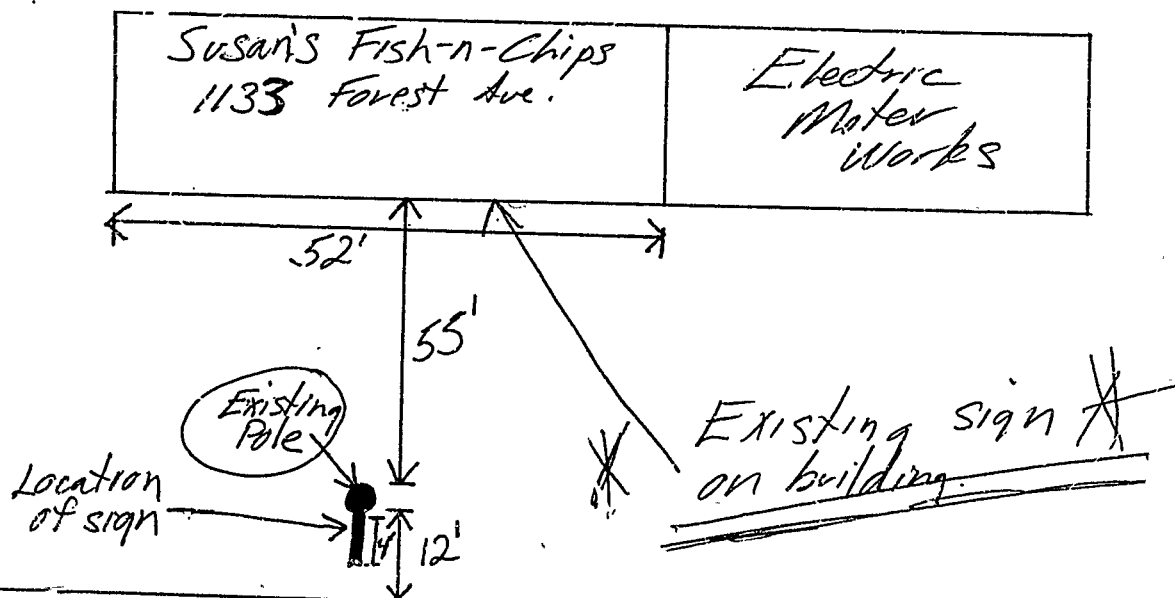 Susan's Fish-n-Chips
1133 Forest Ave.
Electric
Moter
Works
52'
55'
Existing
Pole
Location
of sign
4'
12'
Existing sign
on building.